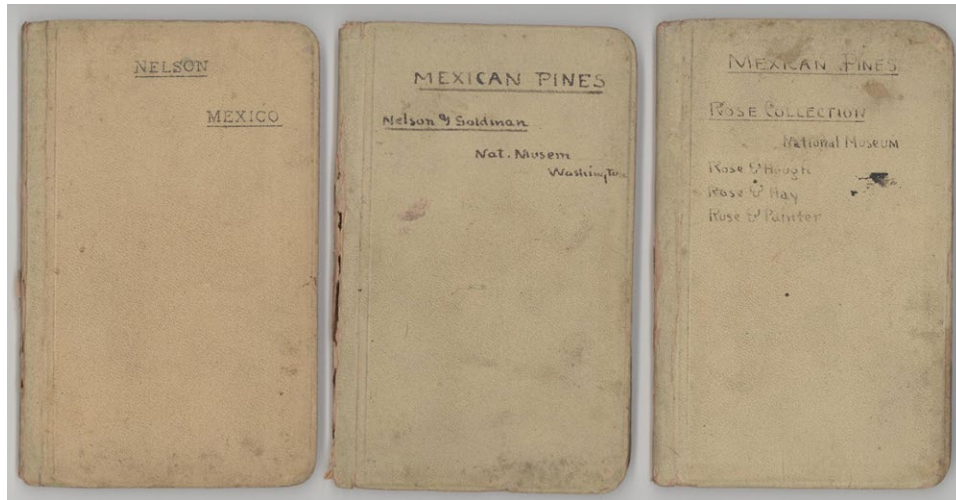 NELSON
MEXICO
MEXICAN PINES
Nelson & Goldman
Nat. Musem
Washington
MEXICAN PINES
ROSE COLLECTION
National Museum
Rose & Hough
Rose & Hay
Rose & Painter